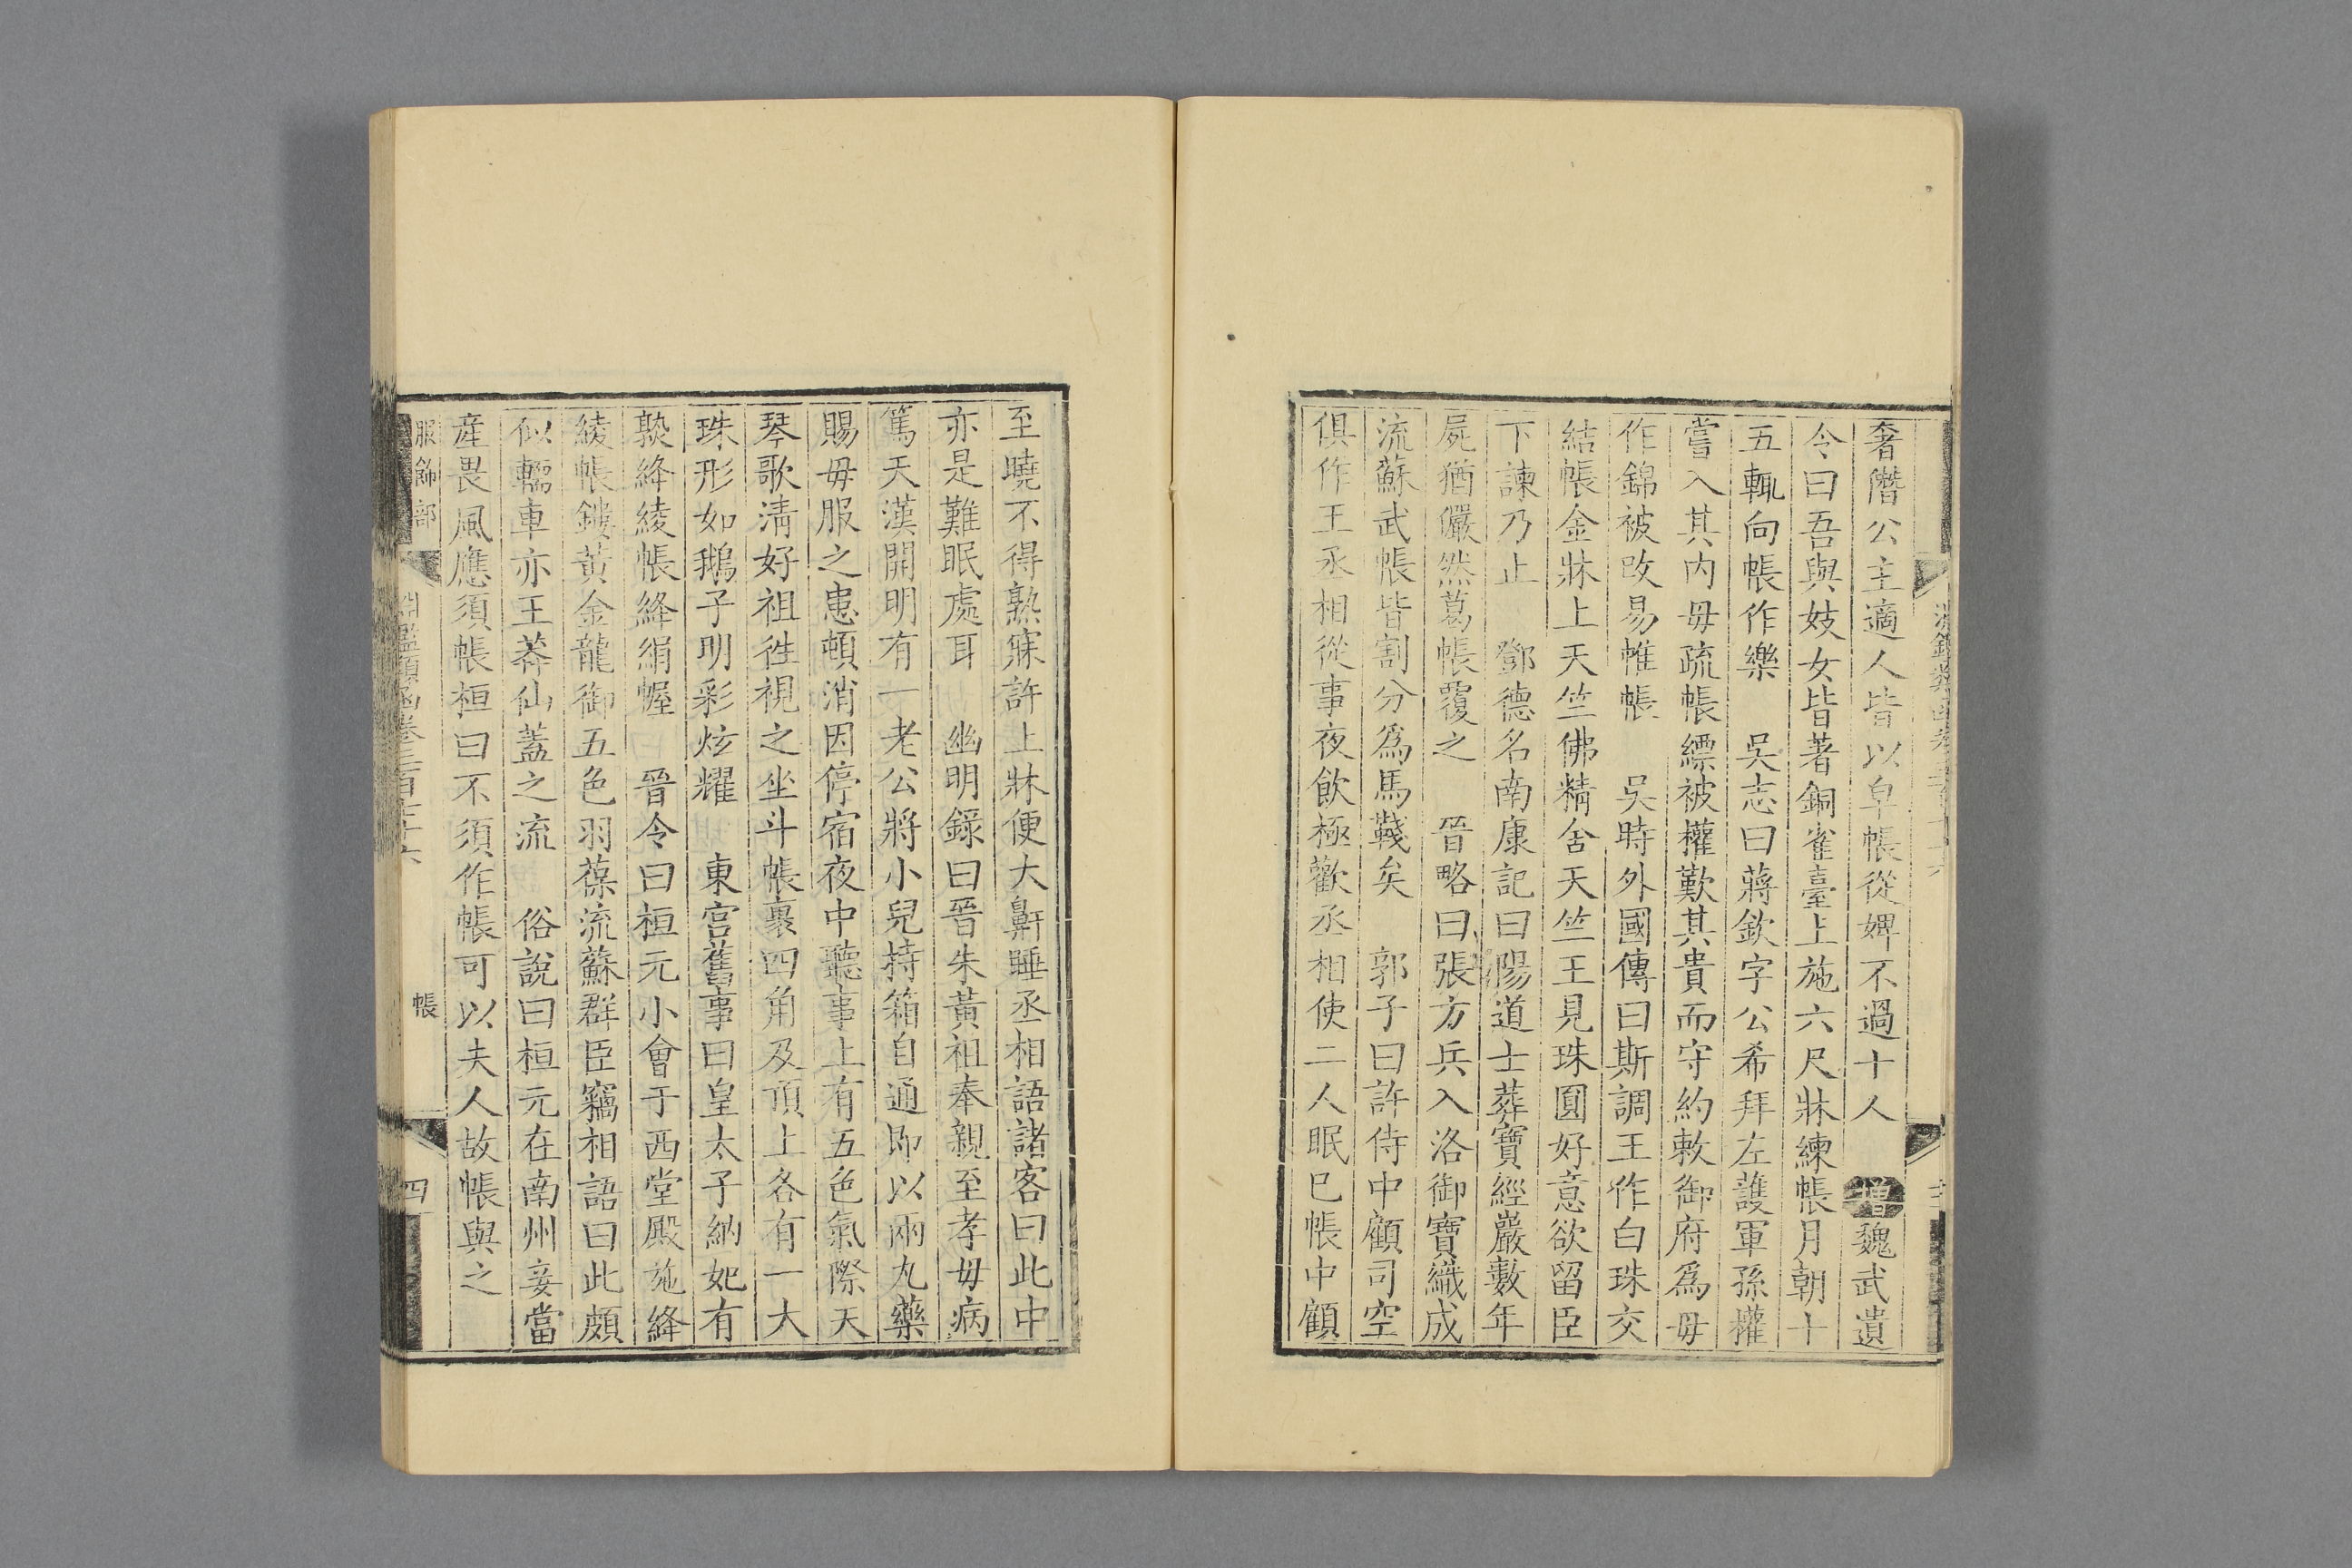 奢僭公主適人皆以皁帳從婢不過十人　增魏武遺
令曰吾與妓女皆著銅雀臺上施六尺牀練帳月朝十
五輒向帳作樂　吳志曰蔣欽字公希拜左護軍孫權
嘗入其內毋疏帳縹被權歎其貴而守約敕御府爲毋
作錦被改易帷帳　吳時外國傳曰斯調王作白珠交
結帳金牀上天竺佛精舍天竺王見珠圓好意欲留臣
下諫乃止　鄧德名南康記曰陽道士葬寶經巖數年
屍猶儼然葛帳覆之　晉略曰張方兵入洛御寶織成
流蘇武帳皆割分爲馬韉矣　郭子曰許侍中顧司空
俱作王丞相從事夜飲極歡丞相使二人眠已帳中顧
至曉不得熟寐許上牀便大鼾睡丞相語諸客曰此中
亦是難眠處耳　幽明錄曰晉朱黃祖奉親至孝毋病
篤天漢開明有一老公將小兒持箱自通即以兩丸藥
賜毋服之患頓消因停宿夜中聽事上有五色氣際天
琴歌淸好祖徃視之坐斗帳裏四角及頂上各有一大
珠形如鵝子明彩炫耀　東宮舊事曰皇太子納妃有
熟絳綾帳絳絹幄　晉令曰桓元小會于西堂殿施絳
綾帳鏤黃金龍御五色羽葆流蘇群臣竊相語曰此頗
似轜車亦王莽仙蓋之流　俗說曰桓元在南州妾當
産畏風應須帳桓曰不須作帳可以夫人故帳與之
服飾部
淵鑑類函卷三百七十六
帳
四